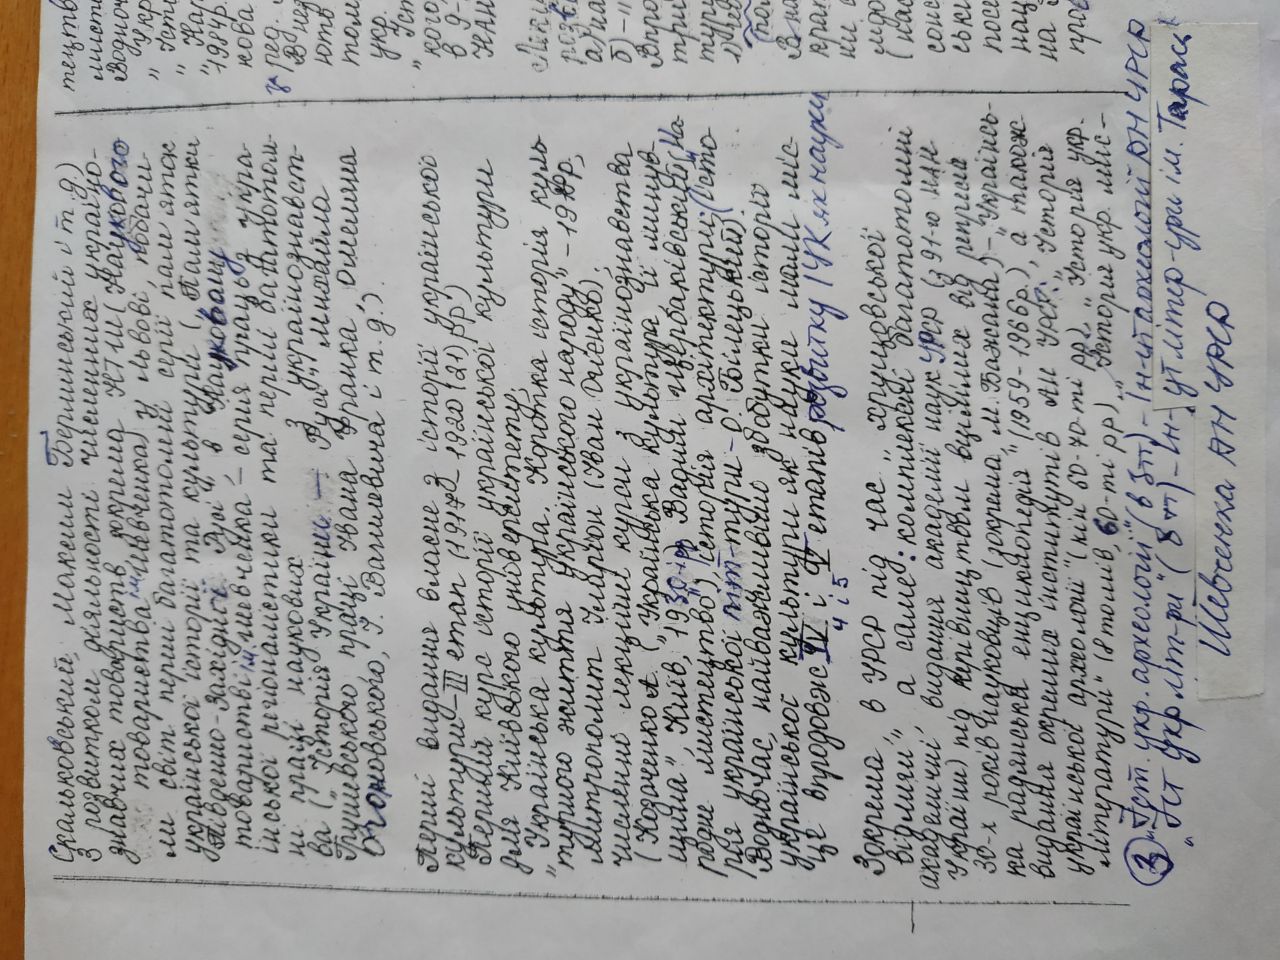 Скальковський, Максим Берлинський і т.д.)
З розвитком діяльності численних україно-
знавчих товариств, зокрема НТШ (Наукового
товариства ім. Шевченка) у Львові, побачи-
ли світ перші багатотомні серії пам'яток
української історії та культури („Пам'ятки
Південно-Західної Русі", в Науковому
товаристві ім. Шевченка – серія праць з укра-
їнської регіоналістики та перші багатотом-
ні праці наукових з українознавст-
ва („Історія України – Русі" Михайла
Грушевського, праці Івана Франка, Омеляна
Огоновського, І. Вагилевича і т.д.).
Перші видання власне з історії української
культури – III етап (1917 – 1920 (21) рр)
Перший курс історії української культури
для Київського університету;
„Українська культура. Коротка історія куль-
турного життя українського народу" – 1918р,
митрополит Іларіон (Іван Огієнко);
численні лекційні курси з українознавства
(Козаченко А. („Українська культура, її минув-
щина", Київ, 1930-і рр), Вадим Щербаківський (На-
родне мистецтво"), історія архітектури; (істо-
рія української літ-тури – О. Білецький).
Водночас, найважливіші здобутки історії
української культури як науки мали міс-
це впродовж IV і V етапів розвитку ІУК як науки
4 і 5
Зокрема, в УРСР під час „хрущовської
відлиги", а саме: комплексні багатотомні
академічні видання академії наук УРСР (з 91-го НАН
України) під керівництвом вцілілих від репресій
30-х років науковців (зокрема, М. Бажана) – „Українсь-
ка радянська енциклопедія" (1959 – 1966р.), а також
видання окремих інститутів АН УРСР: „Історія
української археології" (кін 60-70-ті рр), „Історія укр.
літератури" (8 томів, 60-ті рр), „Історія укр. мис-
3 „Іст. укр. археології" (в 3тт) – Ін-ут археології АН УРСР
„Іст укр літ-ри" (8 тт) – Ін-ут літер-ури ім. Тараса
Шевченка АН УРСР
тецтв
мисте
Водноч
„Укр
„Істо
„Нар
1984р.
нова
за ред.
В нез
ють
том
укр.
„Іст
кого,
в 9-
НАН
Лекц
розв
а) на
б) – "
Впро
три
туру
(пол
В на
крат
ни
мідо
(нас
сонс
ськи
посе
нац
на